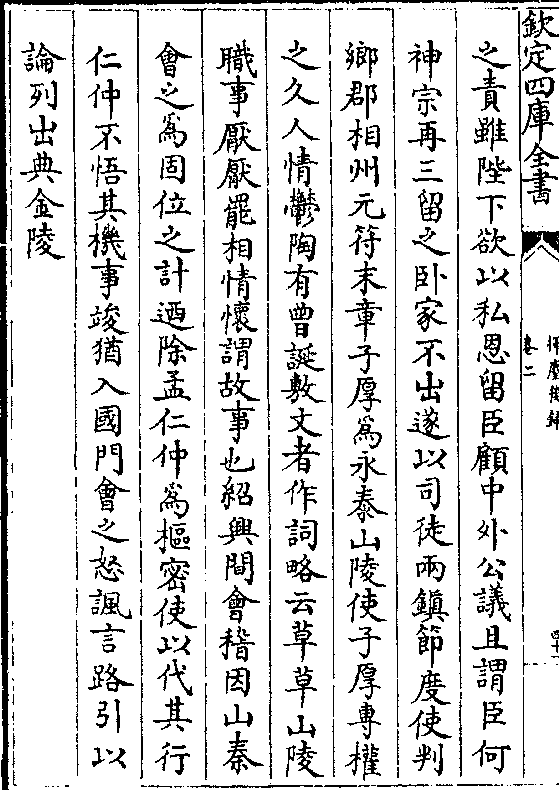 欽定四庫全書
卷二
之責雖陛下欲以私恩留臣顧中外公議且謂臣何
神宗再三留之卧家不出遂以司徒兩鎮節度使判
鄉郡相州元符末章子厚為永泰山陵使子厚專權
之久人情鬱陶有曾誕敷文者作詞略云草草山陵
職事厭厭罷相情懷謂故事也紹興間會稽因山秦
會之為固位之計迺除孟仁仲為樞密使以代其行
仁仲不悟其機事竣猶入國門會之怒諷言路引以
論列出典金陵